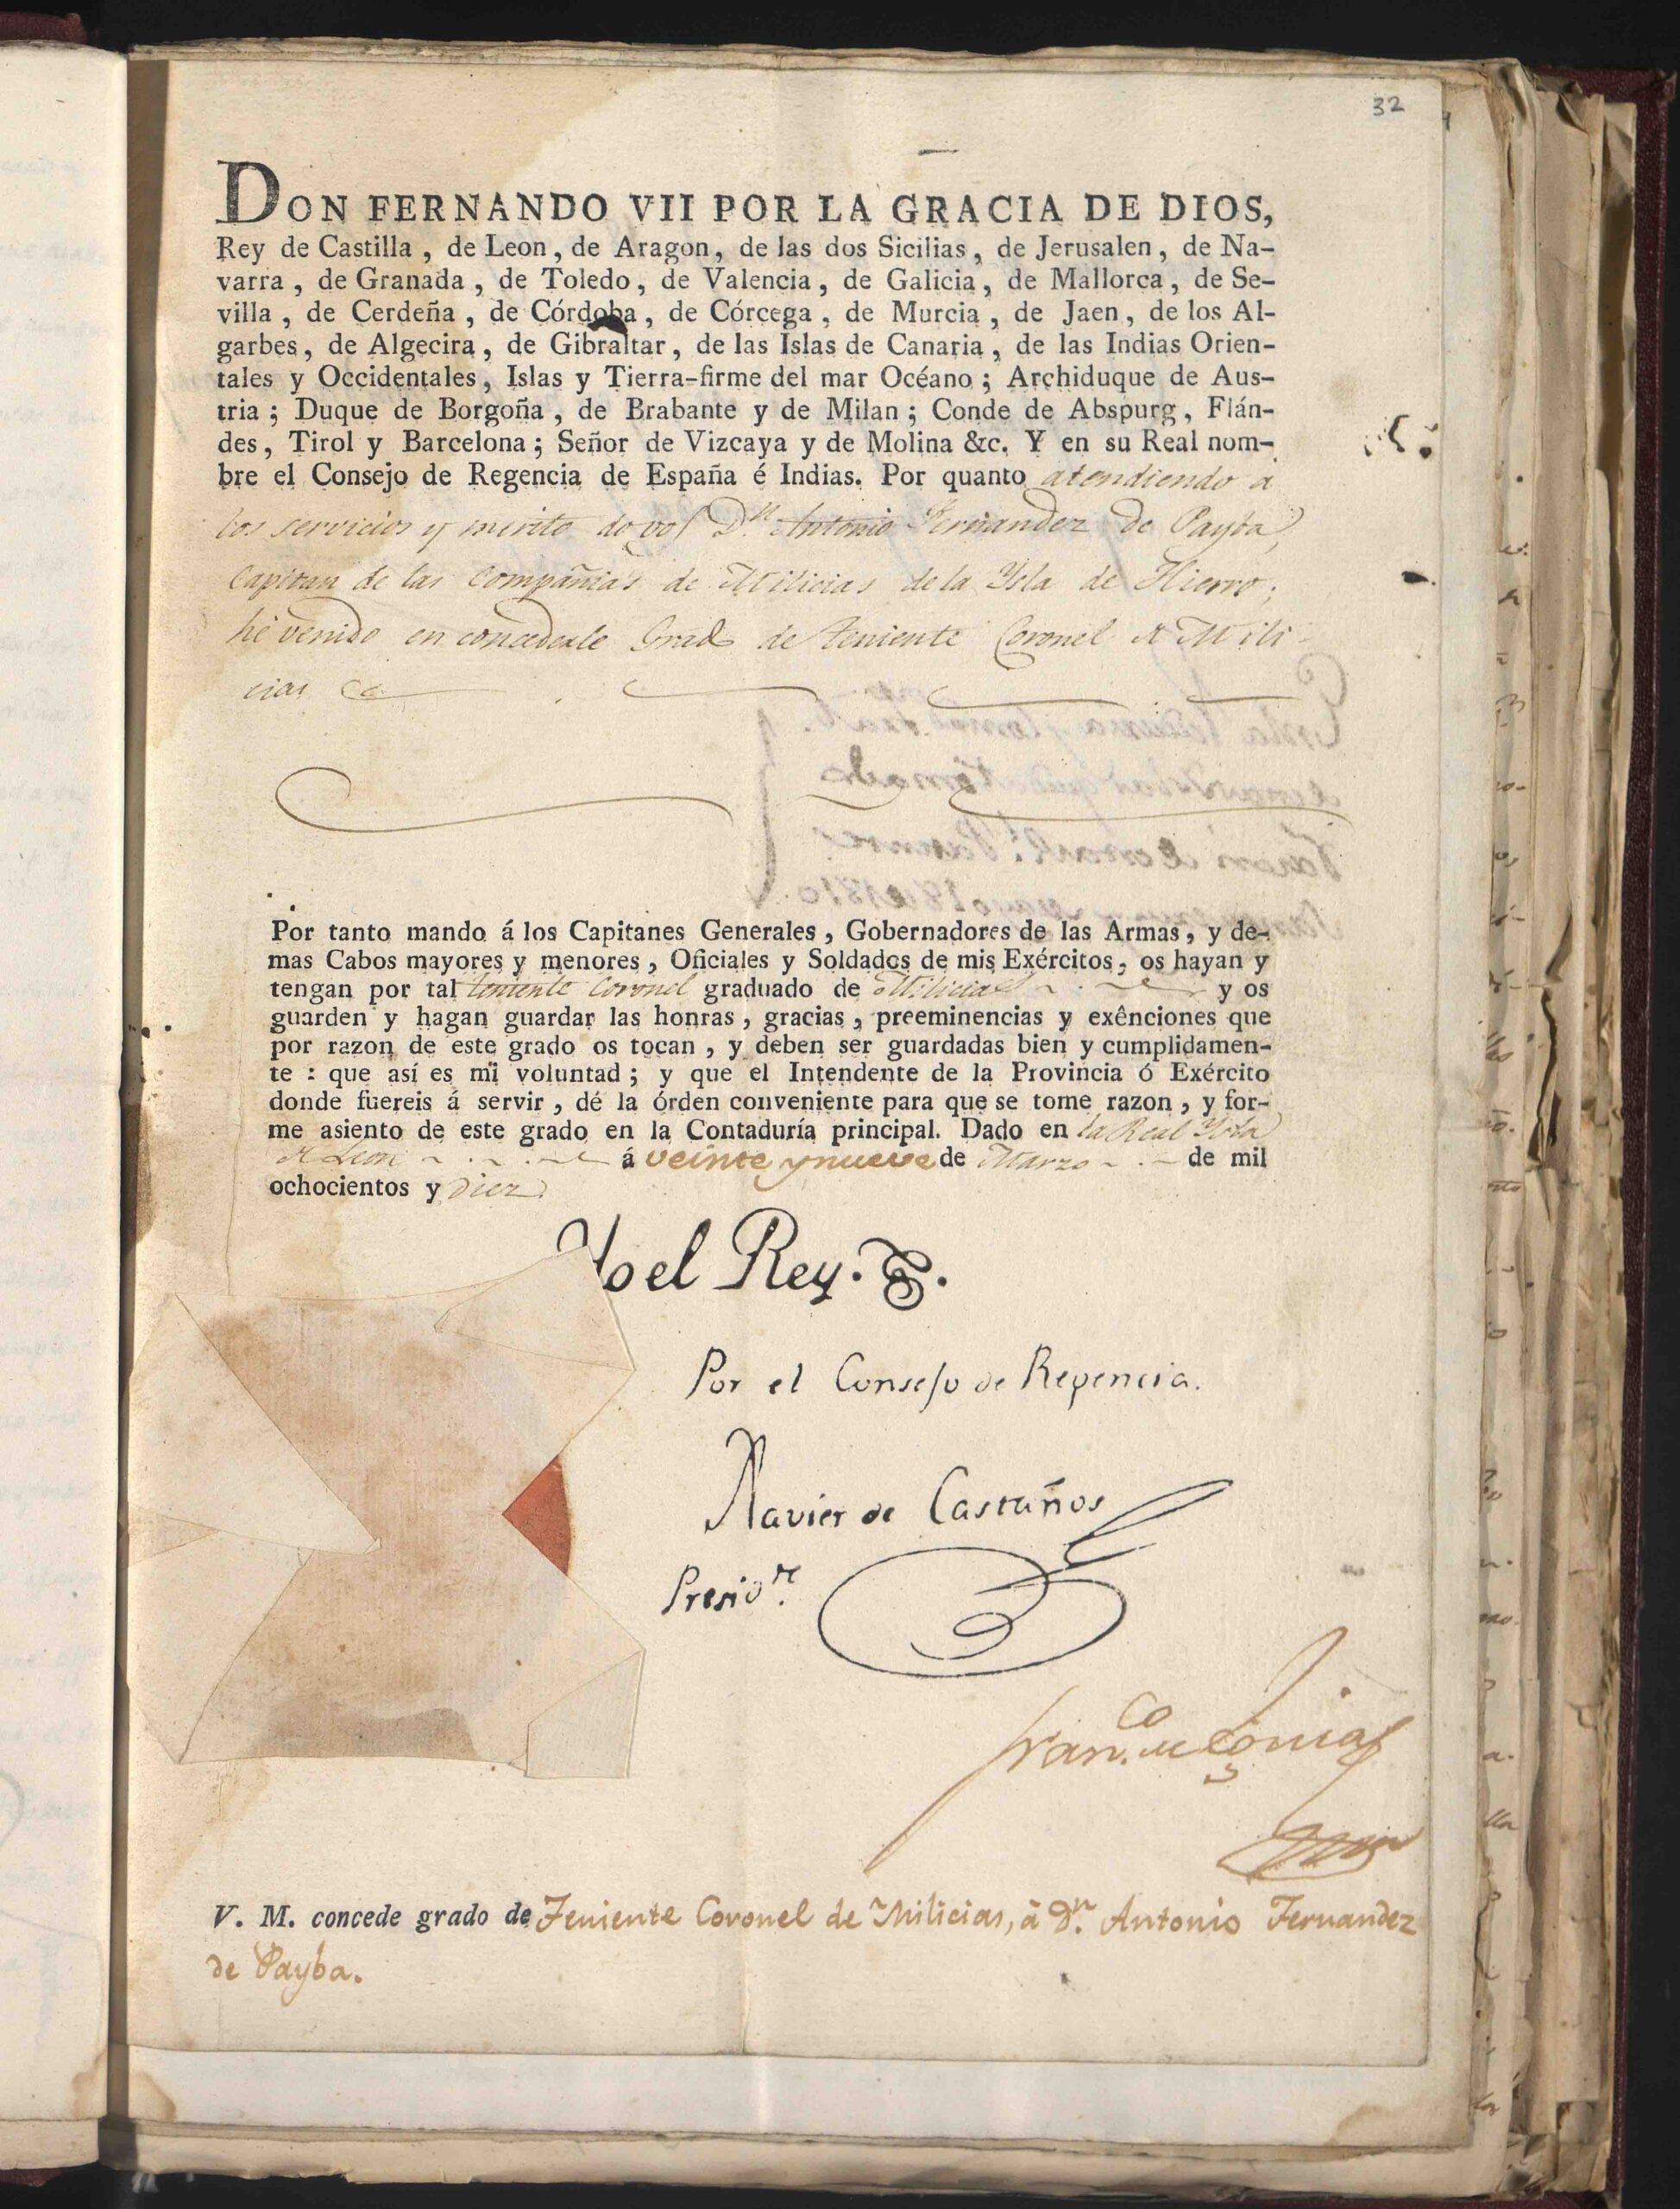 32
DON FERNANDO VII POR LA GRACIA DE DIOS,
Rey de Castilla, de Leon, de Aragon, de las dos Sicilias, de Jerusalen, de Na-
varra, de Granada, de Toledo, de Valencia, de Galicia, de Mallorca, de Se-
villa, de Cerdeña, de Córdoba, de Córcega, de Murcia, de Jaen, de los Al-
garbes, de Algecira, de Gibraltar, de las Islas de Canaria, de las Indias Orien-
tales y Occidentales, Islas y Tierra-firme del mar Océano; Archiduque de Aus-
tria; Duque de Borgoña, de Brabante y de Milan; Conde de Abspurg, Flán-
des, Tirol y Barcelona; Señor de Vizcaya y de Molina &c. Y en su Real nom-
bre el Consejo de Regencia de España é Indias. Por quanto atendiendo a
los servicios y merito de vos Dn. Antonio Fernandez de Payba,
Capitan de las Compañias de Milicias de la Ysla de Hierro;
hé venido en concederle Grado de teniente Coronel de Mili-
cias
Por tanto mando á los Capitanes Generales, Gobernadores de las Armas, y de-
mas Cabos mayores y menores, Oficiales y Soldados de mis Exércitos, os hayan y
tengan por tal teniente Coronel graduado de Milicias y os
guarden y hagan guardar las honras, gracias, preeminencias y exênciones que
por razon de este grado os tocan, y deben ser guardadas bien y cumplidamen-
te: que así es mi voluntad; y que el Intendente de la Provincia ó Exército
donde fuereis á servir, dé la órden conveniente para que se tome razon, y for-
me asiento de este grado en la Contaduría principal. Dado en la Real Ysla
de Leon á veinte y nueve de Marzo de mil
ochocientos y diez
Yo el Rey.
Por el Consejo de Regencia.
Xavier de Castaños
Presidte.
Franco. de Eguia
V. M. concede grado de Teniente Coronel de Milicias, á Dn. Antonio Fernandez
de Payba.